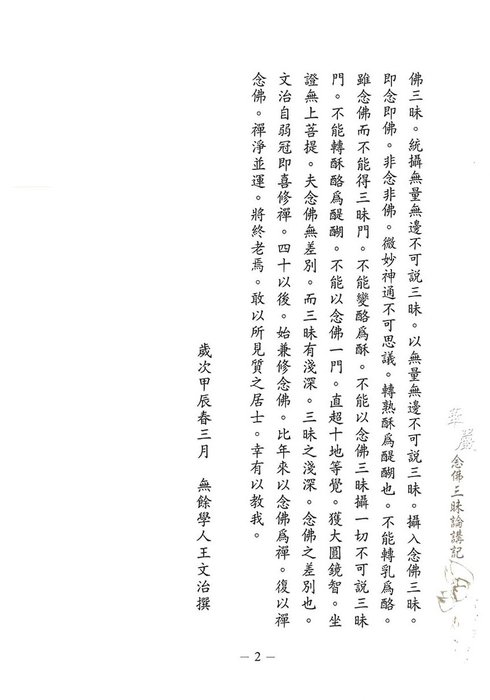 華嚴念佛三昧論講記
佛三昧。統攝無量無邊不可說三昧。以無量無邊不可說三昧。攝入念佛三昧。
即念即佛。非念非佛。微妙神通不可思議。轉熟酥為醍醐也。不能轉乳為酪。
雖念佛而不能得三昧門。不能變酪為酥。不能以念佛三昧攝一切不可說三昧
門。不能轉酥酪為醍醐。不能以念佛一門。直超十地等覺。獲大圓鏡智。坐
證無上菩提。夫念佛無差別。而三昧有淺深。三昧之淺深。念佛之差別也。
文治自弱冠即喜修禪。四十以後。始兼修念佛。比年來以念佛為禪。復以禪
念佛。禪淨並運。將終老焉。敢以所見質之居士。幸有以教我。
歲次甲辰春三月 無餘學人王文治撰
— 2 —